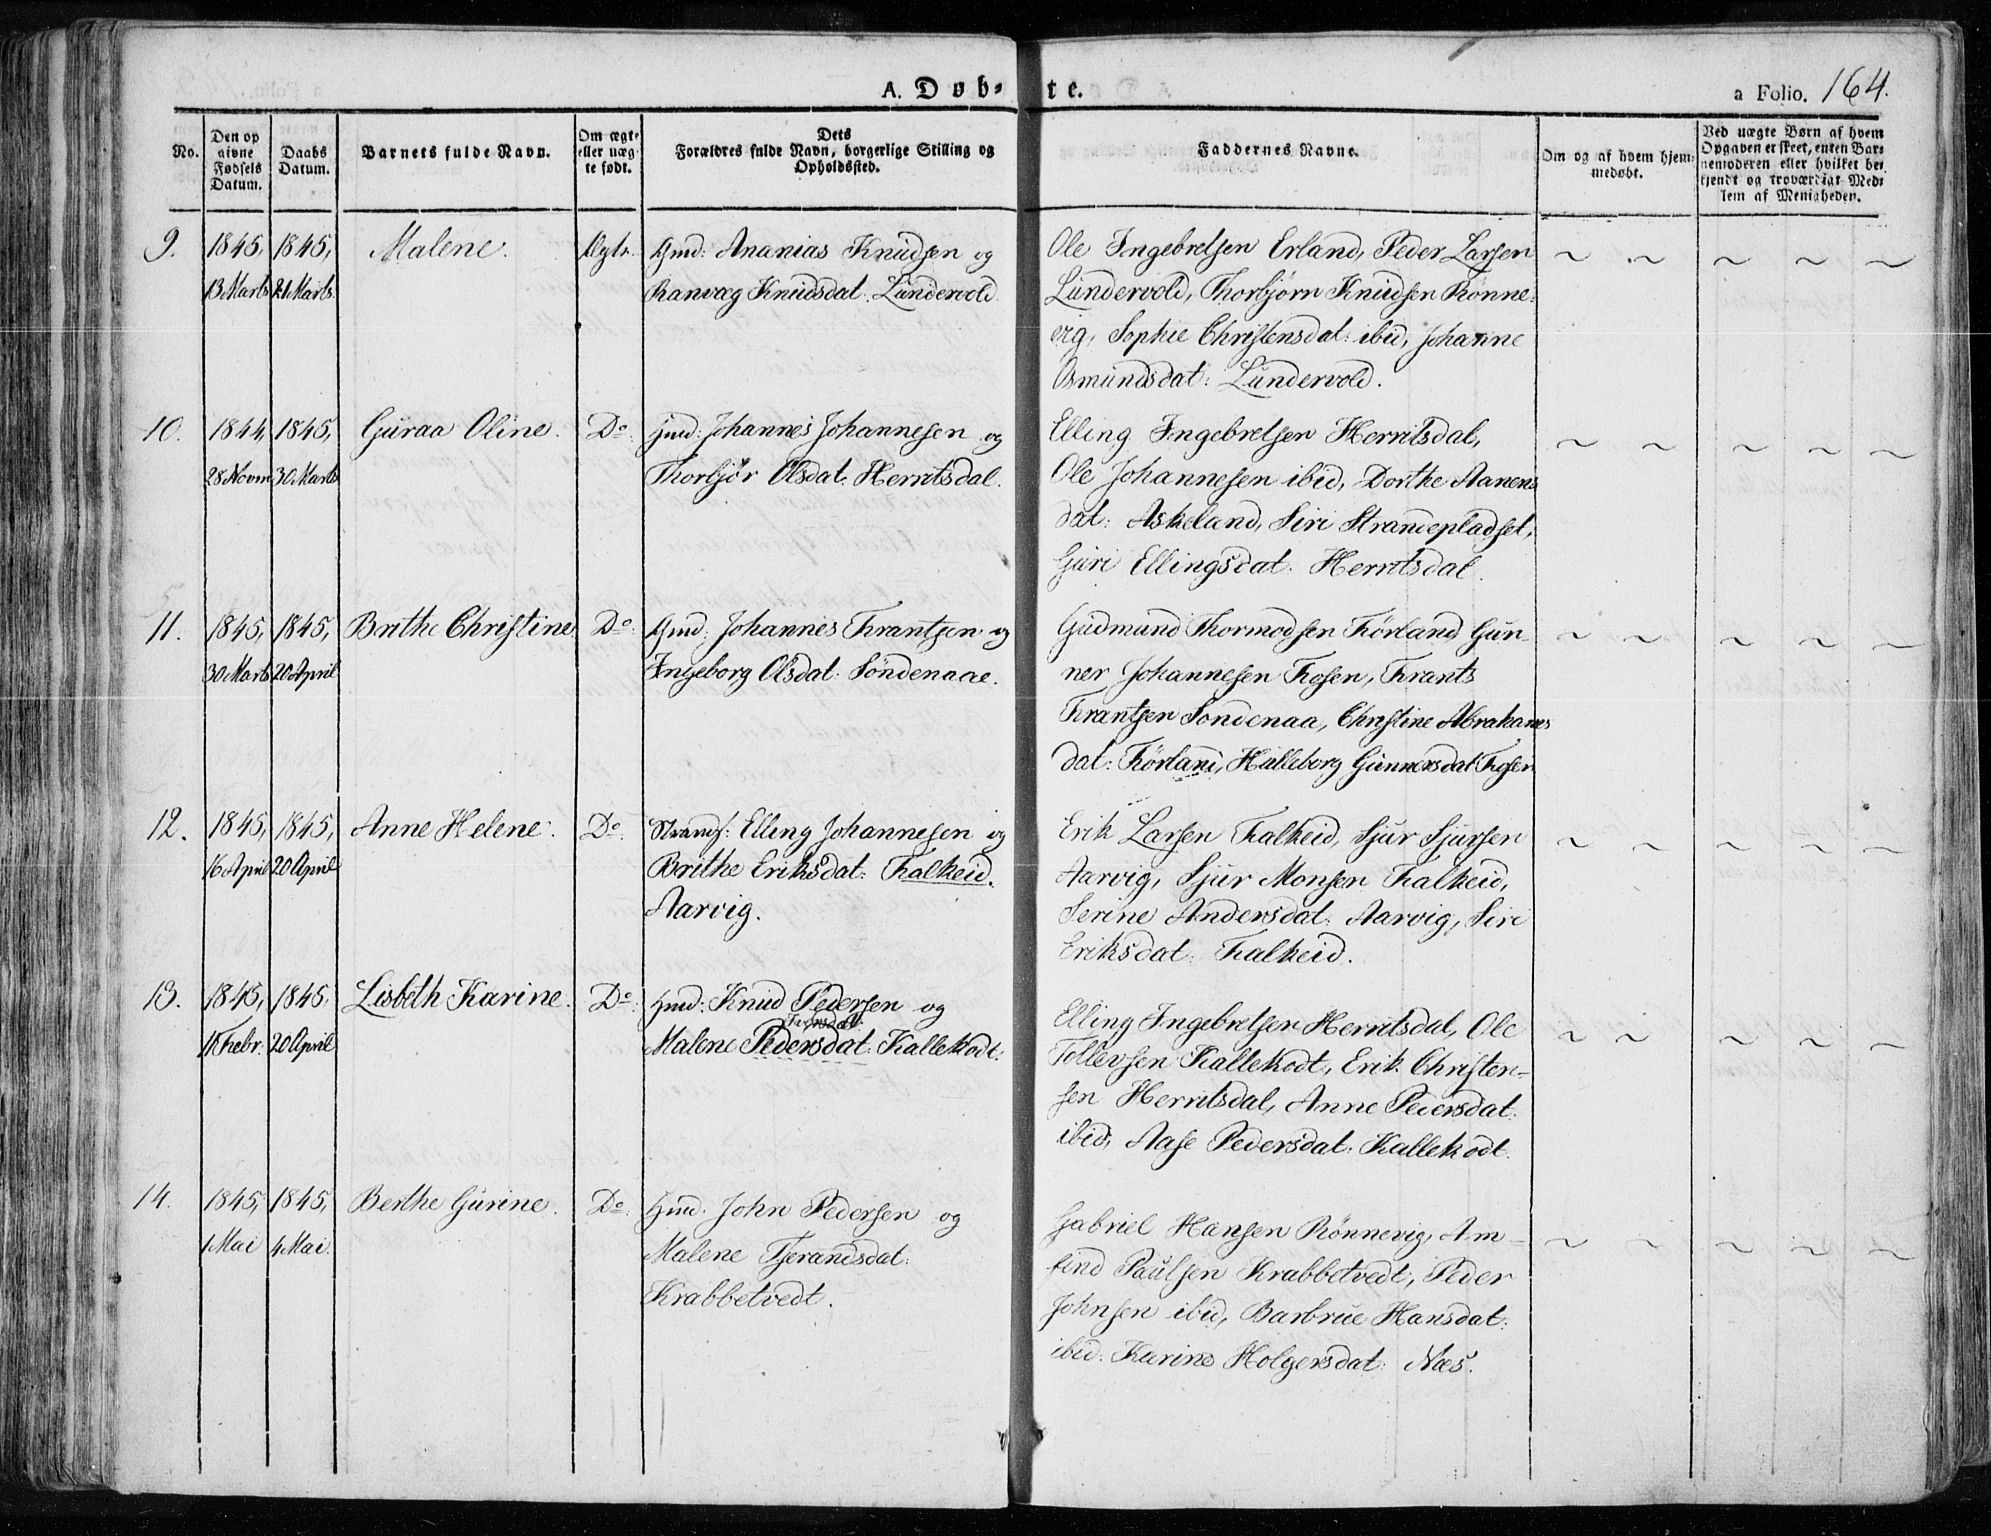 A. Døb-
te.
a Folio. 164.
No.
Den op
givne
Fødsels
Datum.
Daabs
Datum.
Barnets fulde Navn.
Om ægte
eller uæg-
te født.
Dets
Forældres fulde Navn, borgerlige Stilling og
Opholdssted.
Faddernes Navne.
Om og af hvem hjem-
medøbt.
Ved uægte Børn af hvem
Opgaven er skeet, enten Bar-
nemoderen eller hvilket be-
kjendt og troværdigt Med-
lem af Menigheden.
9. 1845, 1845, Malene. Ægte. Gmd: Ananias Knudsen og
13 Marts 21 Marts. Ranvæg Knudsdat. Lundervold.
Ole Ingebretsen Erland, Peder Larsen
Lundervold, Thorbjørn Knudsen Rønne-
vig, Sophie Christensdat: ibid, Johanne
Osmundsdat: Lundervold.
10. 1844, 1845, Guraa Oline. Do. Gmd: Johannes Johannesen og
28 Novm 30 Marts Thorbjør Olsdat. Herritsdal.
Elling Ingebretsen Herritsdal,
Ole Johannesen ibid, Dorthe Aanens
dat: Askeland, Siri Strandepladset,
Guri Ellingsdat. Herritsdal.
11. 1845, 1845, Brithe Christine Do. Gmd: Johannes Frantsen og
30 Marts 20 April Ingeborg Olsdat: Søndenaae.
Gudmund Thormodsen Førland Gun-
ner Johannesen Fosen, Frants
Frantsen Søndenaa, Christine Abrahams
dat: Førland, Halleborg Gunnersdat Fosen
12. 1845, 1845, Anne Helene. Do. Strands: Elling Johannesen og
16 April 20 April Brithe Eriksdat: Falkeid.
Aarvig.
Erik Larsen Falkeid, Sjur Sjursen
Aarvig, Sjur Monsen Falkeid,
Serine Andersdat: Aarvig, Siri
Eriksdat: Falkeid.
13. 1845, 1845. Lisbeth Karine. Do. Gmd: Knud Pedersen og
Febr: 20 April Malene Pedersdat: Kallekodt.
Elling Ingebretsen Herritsdal, Ole
Tollevsen Kallekodt, Erik Christen-
sen Herritsdal, Anne Pedersdat.
ibid, Aase Pedersdat: Kallekodt.
14. 1845, 1845, Berthe Gurine. Do. Gmd. John Pedersen og
1 Mai 4 Mai. Malene Tjerandsdat.
Krabbetvedt.
Gabriel Hansen Rønnevig, Am-
find Paulsen Krabbetvedt, Peder
Johnsen ibid, Barbrue Hansdat:
ibid: Karine Holgersdat: Næs.